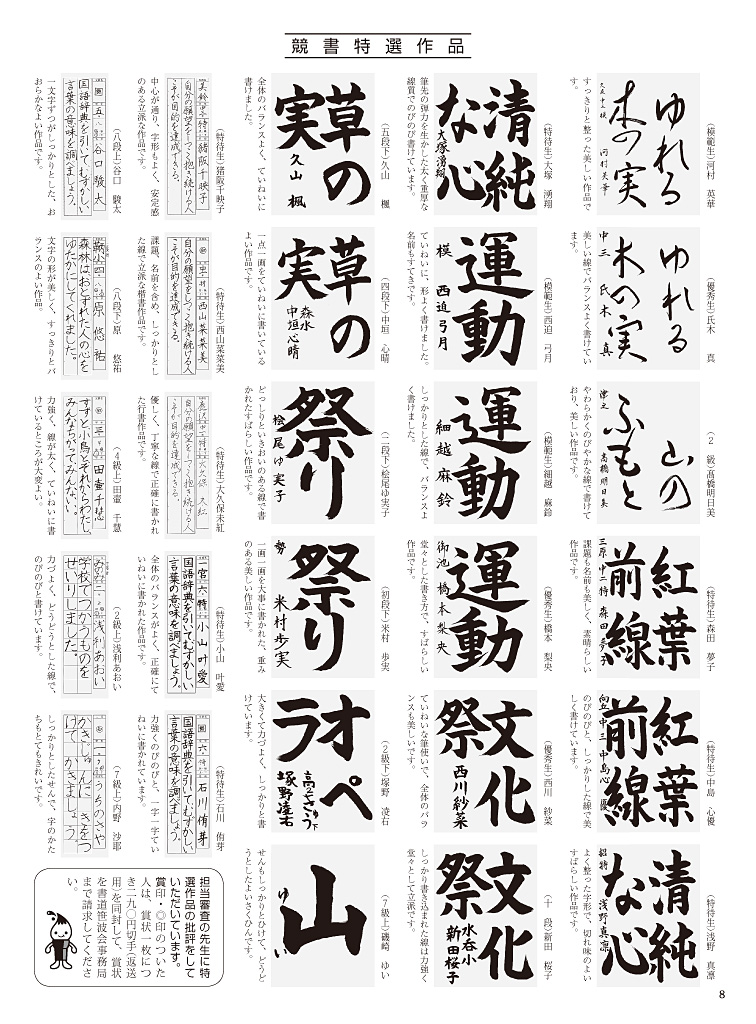 競書特選作品
ゆれる
木の実
河村英華
(模範生)河村 英華
すっきりと整った美しい作品です。
ゆれる
木の実
中三 氏木真
(優秀生)氏木 真
美しい線でバランスよく書けています。
山の
ふもと
高橋明日美
(2 級)髙橋明日美
やわらかくのびやかな線で書けており、美しい作品です。
紅葉
前線
三原中二特 森田夢子
(特待生)森田 夢子
課題も名前も美しく、素晴らしい作品です。
紅葉
前線
向丘中三 中島心優
(特待生)中島 心優
のびのびと、しっかりした線で美しく書けています。
清純
な心
招特 浅野真凛
(特待生)浅野 真凛
よく整った字形で、切れ味のよいすばらしい作品です。
清純
な心
大塚湧翔
(特待生)大塚 湧翔
筆先の弾力を生かした太く重厚な線質でのびのび書けています。
運動
模 西迫弓月
(模範生)西迫 弓月
ていねいに、形よく書けました。名前もすてきです。
運動
細越麻鈴
(模範生)細越 麻鈴
しっかりとした線で、バランスよく書けました。
運動
御池 橋本梨央
(優秀生)橋本 梨央
堂々とした書き方で、すばらしい作品です。
文化
祭
西川紗菜
(優秀生)西川 紗菜
ていねいな筆使いで、全体のバランスも美しいです。
文化
祭
水呑小 新田桜子
(十 段)新田 桜子
しっかり書き込まれた線は力強く堂々として立派です。
草の
実
久山楓
(五段下)久山 楓
全体のバランスよく、ていねいに書けました。
草の
実
森水 中垣心晴
(四段下)中垣 心晴
一点一画をていねいに書いているよい作品です。
祭り
桧尾ゆ実子
(二段下)桧尾ゆ実子
どっしりといきおいのある線で書かれたすばらしい作品です。
祭り
勢 米村歩実
(初段下)米村 歩実
一画一画を大事に書かれた、重みのある美しい作品です。
オペ
ラ
塚野凌右
(2級下)塚野 凌右
大きくて力づよく、しっかりと書けています。
山
ゆい
(7級上)磯崎 ゆい
せんもしっかりとひけて、どうどうとしたよいさくひんです。
猪阪千映子
自分の願望をしつこく抱き続ける人
こそが目的を達成できる。
(特待生)猪阪千映子
中心が通り、字形もよく、安定感のある立派な作品です。
西山菜菜美
自分の願望をしつこく抱き続ける人
こそが目的を達成できる。
(特待生)西山菜菜美
課題、名前を含め、しっかりとした線で立派な楷書作品です。
大久保未紅
自分の願望をしつこく抱き続ける人
こそが目的を達成できる。
(特待生)大久保未紅
優しく、丁寧な線で正確に書かれた行書作品です。
一宮 六 特 小山叶愛
国語辞典を引いて、むずかしい
言葉の意味を調べましょう。
(特待生)小山 叶愛
全体のバランスがよく、正確にていねいに書かれた作品です。
六 特 石川侑芽
国語辞典を引いて、むずかしい
言葉の意味を調べましょう。
(特待生)石川 侑芽
力強くのびのびと、一字一字ていねいに書かれています。
五 谷口駿太
国語辞典を引いて、むずかしい
言葉の意味を調べましょう。
(八段上)谷口 駿太
一文字ずつがしっかりとした、おおらかなよい作品です。
鞆小 四 原悠祐
森林は、おとずれた人の心を
ゆたかにしてくれました。
(八段下)原 悠祐
文字の形が美しく、すっきりとバランスのよい作品。
三 田壷千慧
すずと小鳥とそれからわたし、
みんなちがってみんないい。
(4級上)田壷 千慧
力強く、線が太く、ていねいに書けているところが大変よい。
浅利あおい
学校でつかうものを
せいりしました。
(2級上)浅利あおい
力づよく、どうどうとした線で、のびのびと書けています。
一 うちのさや
かきじゅんに きをつ
けて かきましょう。
(7級上)内野 沙耶
しっかりとしたせんで、字のかたちもとてもきれいです。
担当審査の先生に特選作品の批評をしていただいています。
賞印・◎印のついた人は、賞状一枚につき一九〇円切手(返送用)を同封して、賞状を書道笹波会事務局まで請求してください。
8